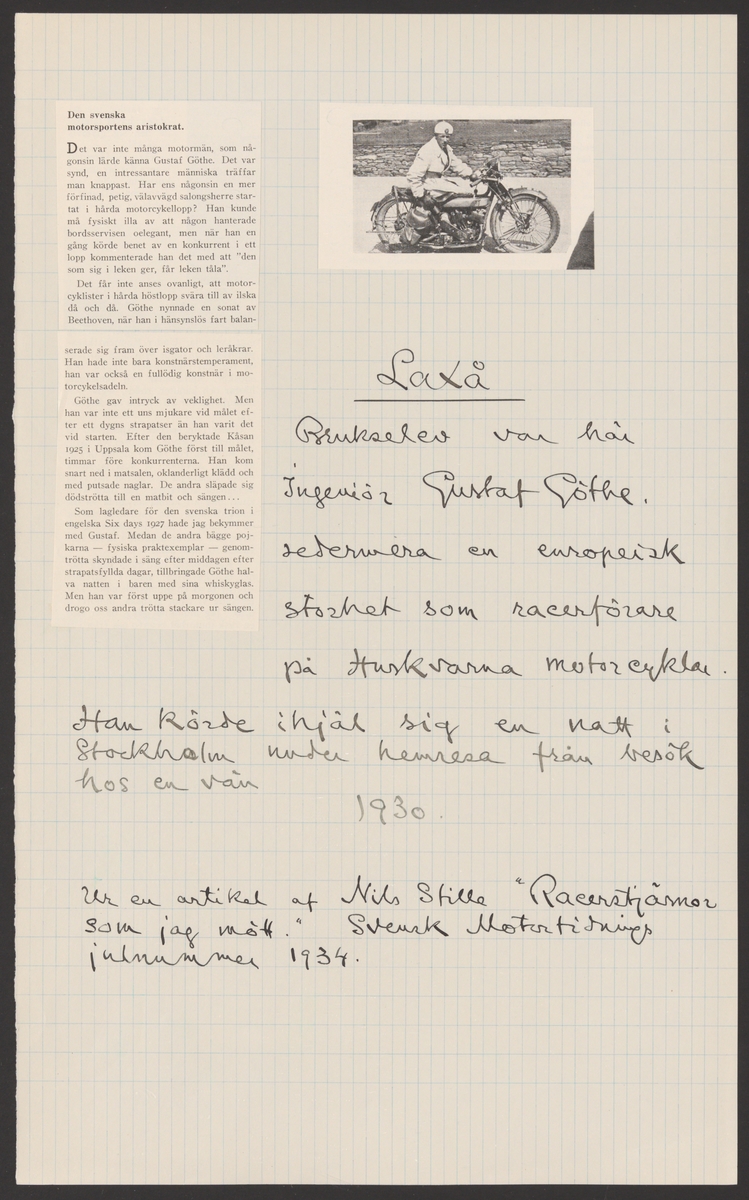 Den svenska
motorsportens aristokrat.
Det var inte många motormän, som nå-
gonsin lärde känna Gustaf Göthe. Det var
synd, en intressantare människa träffar
man knappast. Har ens någonsin en mer
förfinad, petig, välavvägd salongsherre star-
tat i hårda motorcykellopp? Han kunde
må fysiskt illa av att någon hanterade
bordsservisen oelegant, men när han en
gång körde benet av en konkurrent i ett
lopp kommenterade han det med att "den
som sig i leken ger, får leken tåla".
Det får inte anses ovanligt, att motor-
cyklister i hårda höstlopp svära till av ilska
då och då. Göthe nynnade en sonat av
Beethoven, när han i hänsynslös fart balan-
serade sig fram över isgator och leråkrar.
Han hade inte bara konstnärstemperament,
han var också en fullödig konstnär i mo-
torcykelsadeln.
Göthe gav intryck av veklighet. Men
han var inte ett uns mjukare vid målet ef-
ter ett dygns strapatser än han varit det
vid starten. Efter den beryktade Kåsan
1925 i Uppsala kom Göthe först till målet,
timmar före konkurrenterna. Han kom
snart ned i matsalen, oklanderligt klädd och
med putsade naglar. De andra släpade sig
dödströtta till en matbit och sängen...
Som lagledare för den svenska trion i
engelska Six days 1927 hade jag bekymmer
med Gustaf. Medan de andra bägge poj-
karna — fysiska praktexemplar — genom-
trötta skyndade i säng efter middagen efter
strapatsfyllda dagar, tillbringade Göthe hal-
va natten i baren med sina whiskyglas.
Men han var först uppe på morgonen och
drogo oss andra trötta stackare ur sängen.
Laxå
Brukselev var här
Ingeniör Gustaf Göthe.
sedermera en europeisk
storhet som racerförare
på Huskvarna motorcyklar.
Han körde ihjäl sig en natt i
Stockholm under hemresa från besök
hos en vän
1930.
Ur en artikel af Nils Stille "Racerstjärnor
som jag mött." Svensk Motortidnings
julnummer 1934.